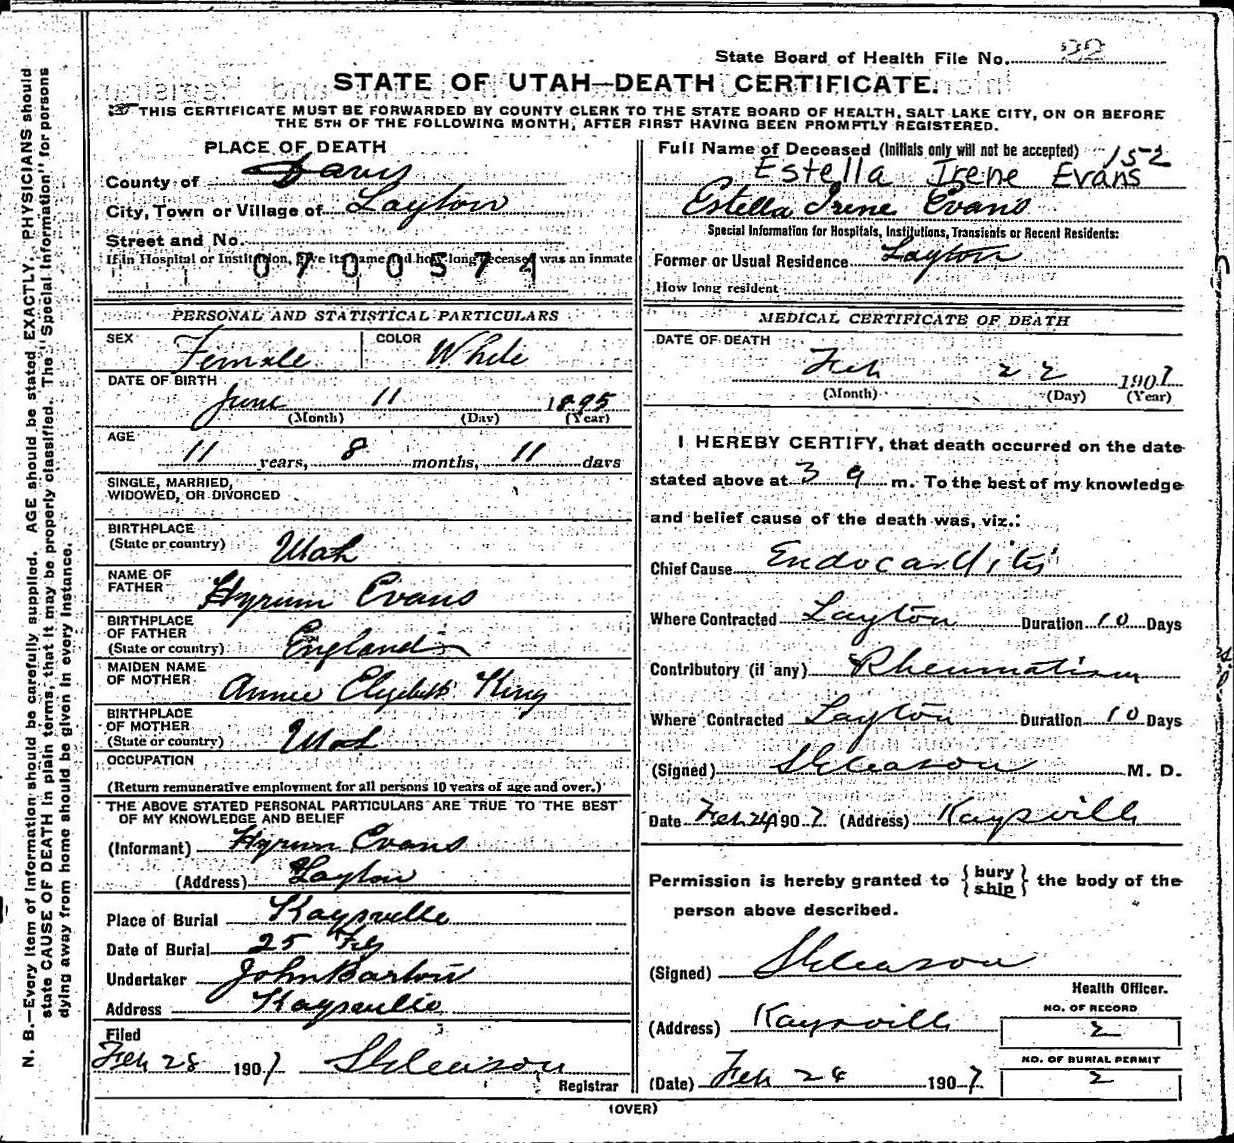 State Board of Health File No. 32
STATE OF UTAH—DEATH CERTIFICATE.
THIS CERTIFICATE MUST BE FORWARDED BY COUNTY CLERK TO THE STATE BOARD OF HEALTH, SALT LAKE CITY, ON OR BEFORE
THE 5TH OF THE FOLLOWING MONTH, AFTER FIRST HAVING BEEN PROMPTLY REGISTERED.
PLACE OF DEATH
County of Davis
City, Town or Village of Layton
Street and No.
If in Hospital or Institution, give its name and how long deceased was an inmate
0700574
PERSONAL AND STATISTICAL PARTICULARS
SEX Female COLOR White
DATE OF BIRTH
June 11 1895
(Month) (Day) (Year)
AGE
11 years, 8 months, 11 days
SINGLE, MARRIED,
WIDOWED, OR DIVORCED
BIRTHPLACE
(State or country) Utah
NAME OF
FATHER Hyrum Evans
BIRTHPLACE
OF FATHER
(State or country) England
MAIDEN NAME
OF MOTHER Annie Elizabeth King
BIRTHPLACE
OF MOTHER
(State or country) Utah
OCCUPATION
(Return remunerative employment for all persons 10 years of age and over.)
THE ABOVE STATED PERSONAL PARTICULARS ARE TRUE TO THE BEST
OF MY KNOWLEDGE AND BELIEF
(Informant) Hyrum Evans
(Address) Layton
Place of Burial Kaysville
Date of Burial 25 Feb
Undertaker John Barton
Address Kaysville
Filed
Feb 28 1907 S H Gleason
Registrar
Full Name of Deceased (Initials only will not be accepted) 152
Estella Irene Evans
Estella Irene Evans
Special Information for Hospitals, Institutions, Transients or Recent Residents:
Former or Usual Residence Layton
How long resident
MEDICAL CERTIFICATE OF DEATH
DATE OF DEATH
Feb 22 1907
(Month) (Day) (Year)
I HEREBY CERTIFY, that death occurred on the date
stated above at 3 a m. To the best of my knowledge
and belief cause of the death was, viz.:
Chief Cause Endocarditis
Where Contracted Layton Duration 10 Days
Contributory (if any) Rheumatism
Where Contracted Layton Duration 10 Days
(Signed) S H Gleason M. D.
Date Feb 24 1907 (Address) Kaysville
Permission is hereby granted to { bury ship } the body of the
person above described.
(Signed) S H Gleason
Health Officer.
(Address) Kaysville
NO. OF RECORD
2
NO. OF BURIAL PERMIT
2
(Date) Feb 24 1907
(OVER)
N. B.—Every item of information should be carefully supplied. AGE should be stated EXACTLY. PHYSICIANS should
state CAUSE OF DEATH in plain terms, that it may be properly classified. The "Special Information" for persons
dying away from home should be given in every instance.